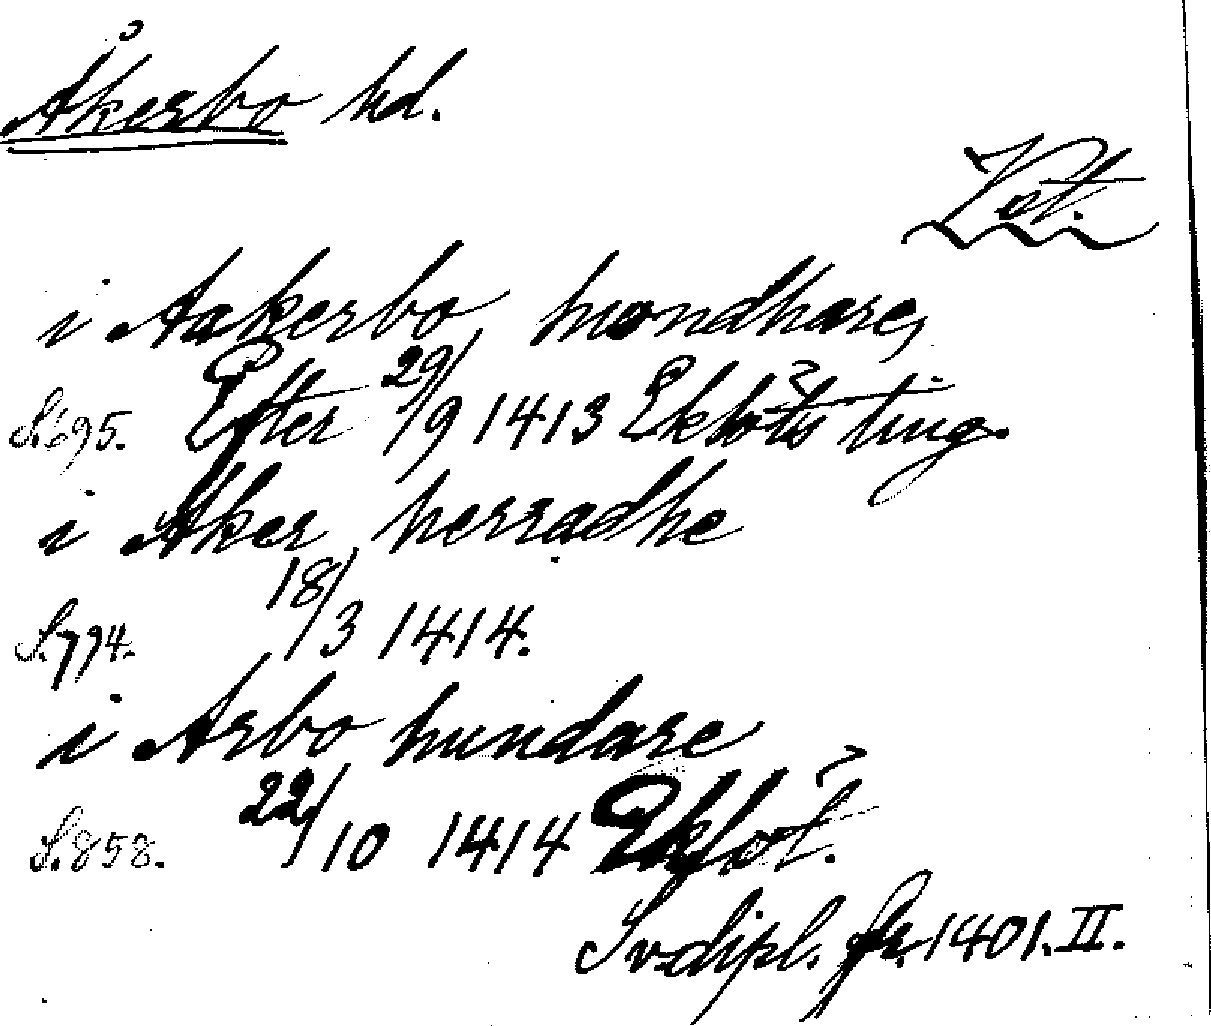 Åkerbo hd.
Vst.
i Aakerbo hwondhare,
S. 695. Efter 29/9 1413 Ekløts ting.
i Aker herradhe
S. 794. 18/3 1414.
i Arbo hundare
S. 858. 22/10 1414 Ekløt.
Sv. dipl. fr. 1401. II.